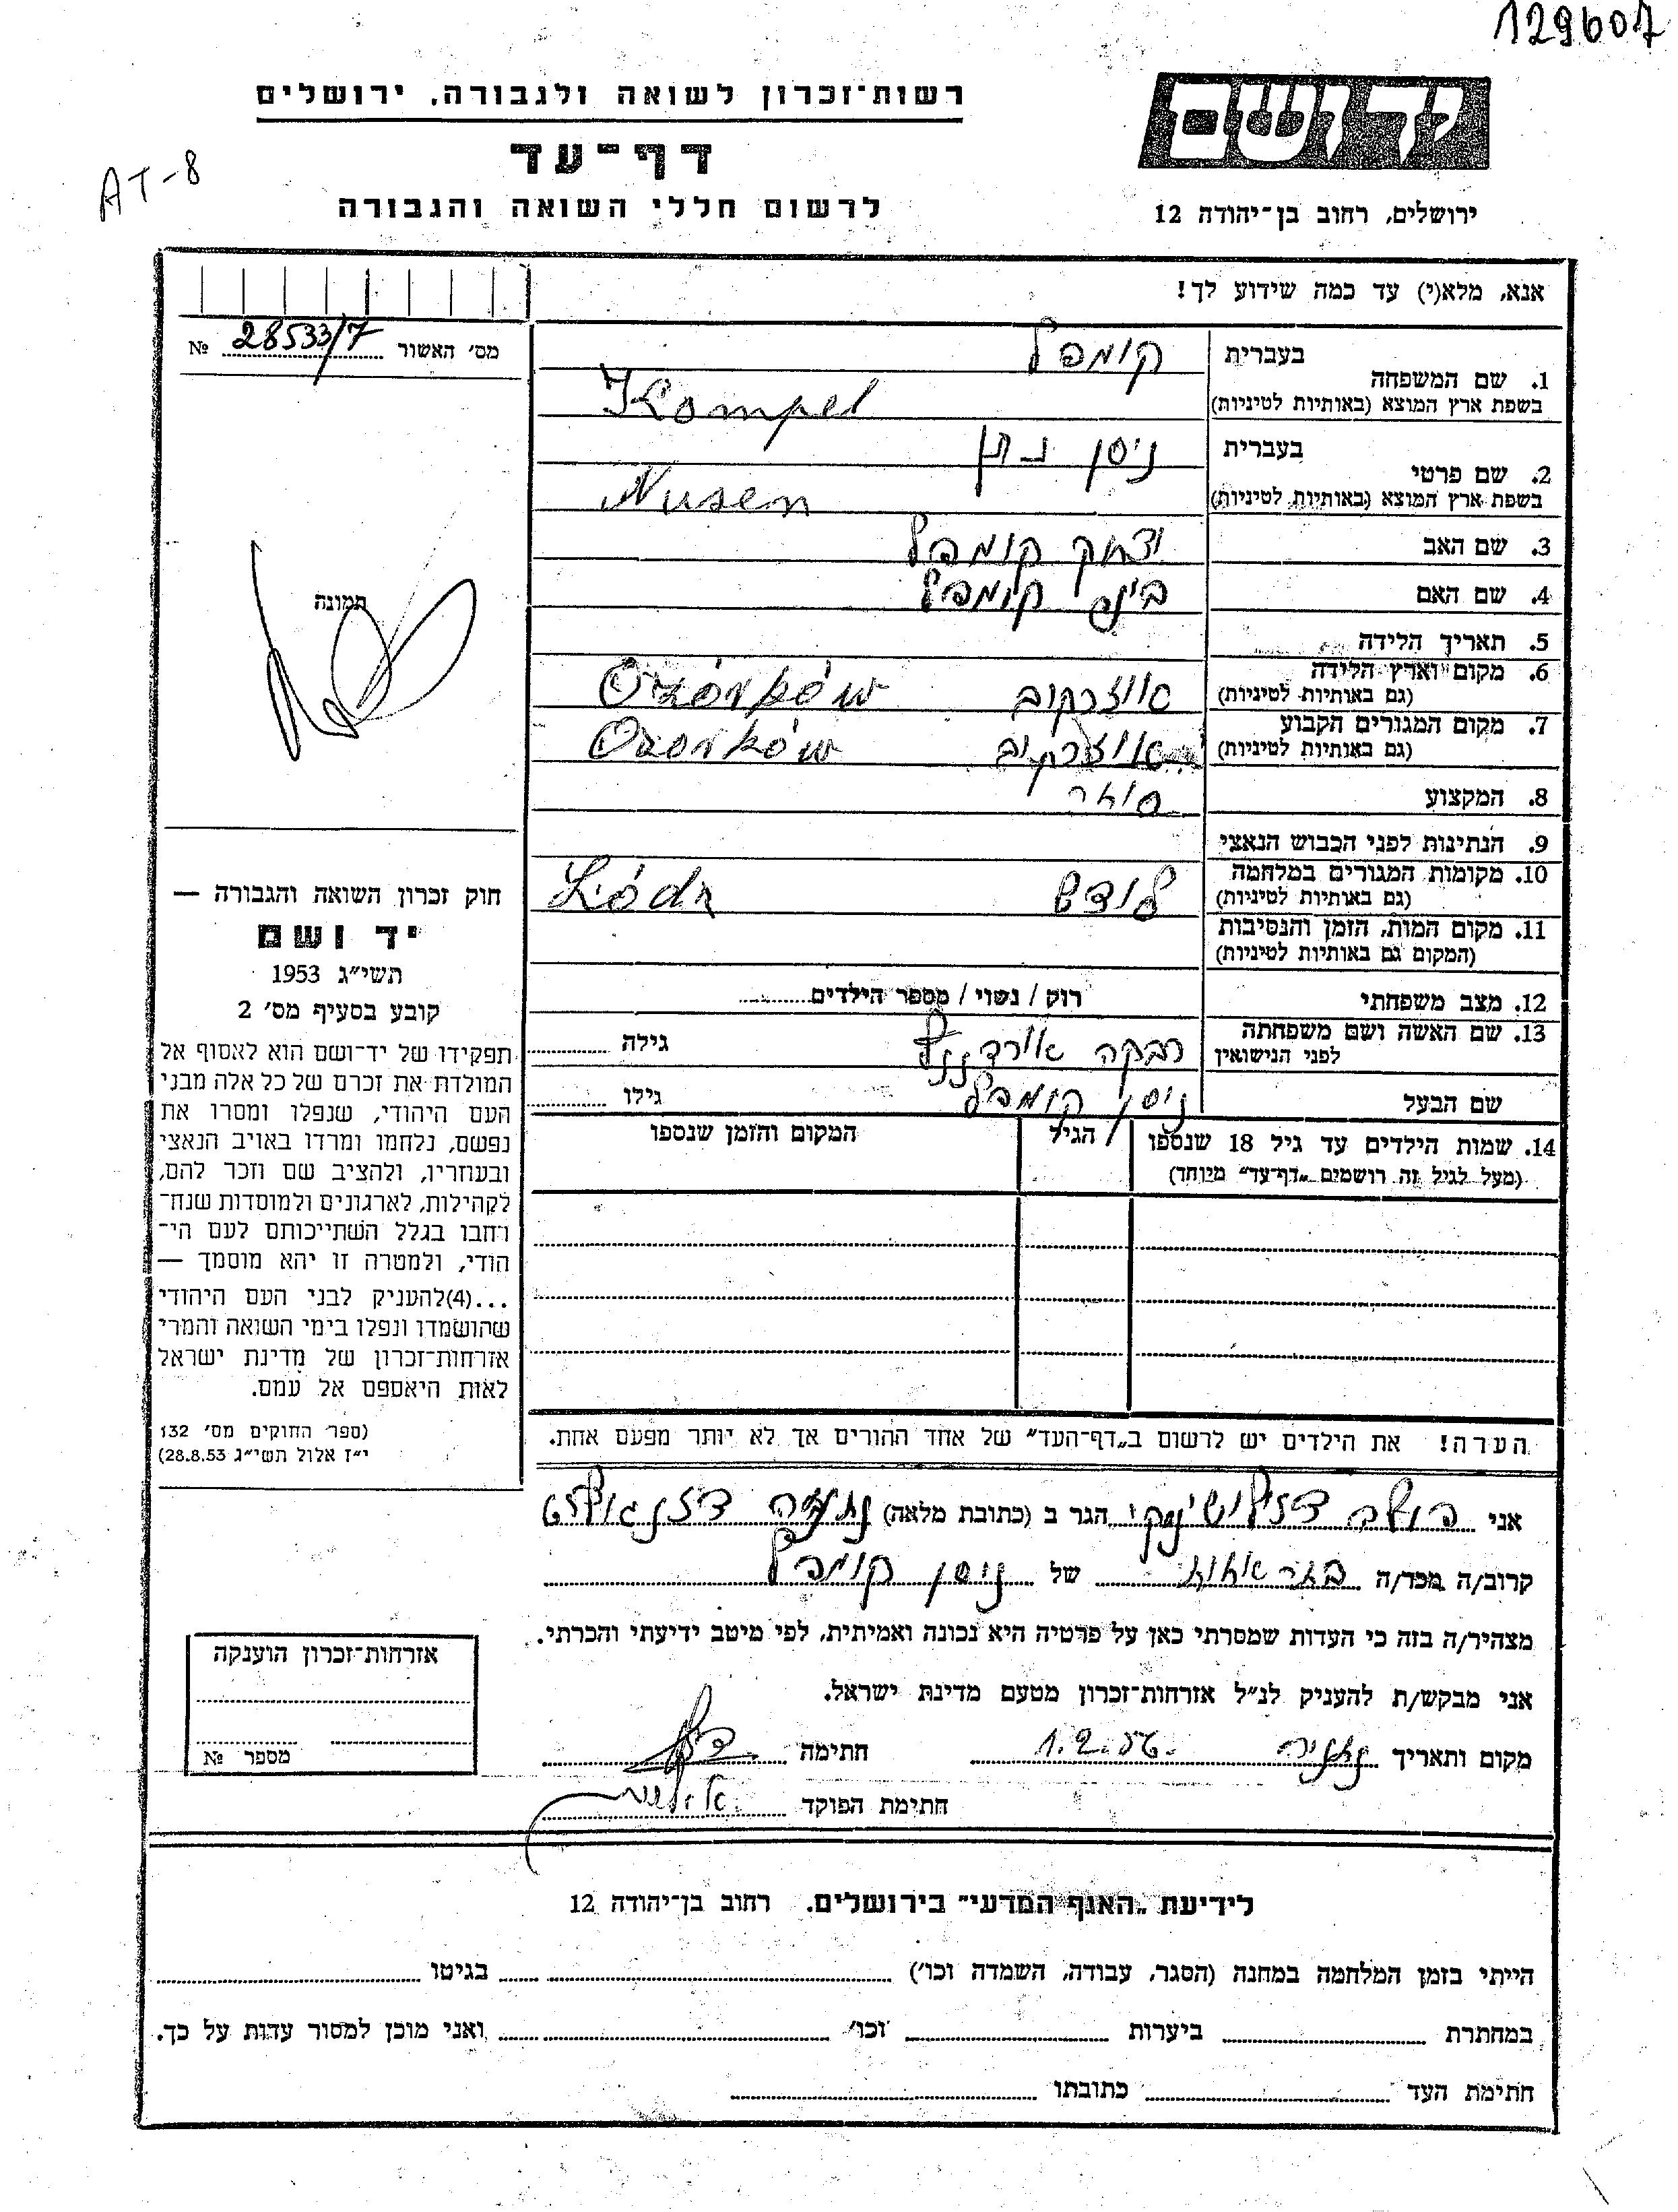 129607
רשות־זכרון לשואה ולגבורה, ירושלים
יד ושם
דף־עד
AT-8
לרשום חללי השואה והגבורה
ירושלים, רחוב בן־יהודה 12
אנא, מלא(י) עד כמה שידוע לך!
מס׳ האשור 28533/7 №
תמונה
חוק זכרון השואה והגבורה —
יד ושם
תשי״ג 1953
קובע בסעיף מס׳ 2
תפקידו של יד־ושם הוא לאסוף אל
המולדת את זכרם של כל אלה מבני
העם היהודי, שנפלו ומסרו את
נפשם, נלחמו ומרדו באויב הנאצי
ובעוזריו, ולהציב שם וזכר להם,
לקהילות, לארגונים ולמוסדות שנח־
רחבו בגלל השתייכותם לעם הי־
הודי, ולמטרה זו יהא מוסמך —
...(4)להעניק לבני העם היהודי
שהושמדו ונפלו בימי השואה והמרי
אזרחות־זכרון של מדינת ישראל
לאות היאספם אל עמם.
(ספר החוקים מס׳ 132
י״ז אלול תשי״ג 28.8.53)
1. שם המשפחה בעברית קומפל
בשפת ארץ המוצא (באותיות לטיניות) Kompel
2. שם פרטי בעברית ניסן נתן
בשפת ארץ המוצא (באותיות לטיניות) Nusen
3. שם האב יצחק קומפל
4. שם האם קומפל
5. תאריך הלידה
6. מקום וארץ הלידה אוזרקוב Ozórków
(גם באותיות לטיניות)
7. מקום המגורים הקבוע אוזרקוב Ozorków
(גם באותיות לטיניות)
8. המקצוע סוחר
9. הנתינות לפני הכבוש הנאצי
10. מקומות המגורים במלחמה לודש Łódz
(גם באותיות לטיניות)
11. מקום המות, הזמן והנסיבות
(המקום גם באותיות לטיניות)
12. מצב משפחתי רוק / נשוי / מספר הילדים
13. שם האשה ושם משפחתה רבקה גילה
לפני הנישואין
שם הבעל ניסן קומפל גילו
14. שמות הילדים עד גיל 18 שנספו הגיל המקום והזמן שנספו
(מעל לגיל זה רושמים „דף־עד״ מיוחד)
הערה! את הילדים יש לרשום ב„דף־העד״ של אחד ההורים אך לא יותר מפעם אחת.
אני הגר ב (כתובת מלאה) נתניה
קרוב/ה מכר/ה בת אחות של ניסן קומפל
מצהיר/ה בזה כי העדות שמסרתי כאן על פרטיה היא נכונה ואמיתית, לפי מיטב ידיעתי והכרתי.
אני מבקש/ת להעניק לנ״ל אזרחות־זכרון מטעם מדינת ישראל.
מקום ותאריך נתניה 1.2.56 חתימה
חתימת הפוקד
אזרחות־זכרון הוענקה
מספר №
לידיעת „האגף המדעי״ בירושלים. רחוב בן־יהודה 12
הייתי בזמן המלחמה במחנה (הסגר, עבודה, השמדה וכו׳) בגיטו
במחתרת ביערות וכו׳ ואני מוכן למסור עדות על כך.
חתימת העד כתובתו